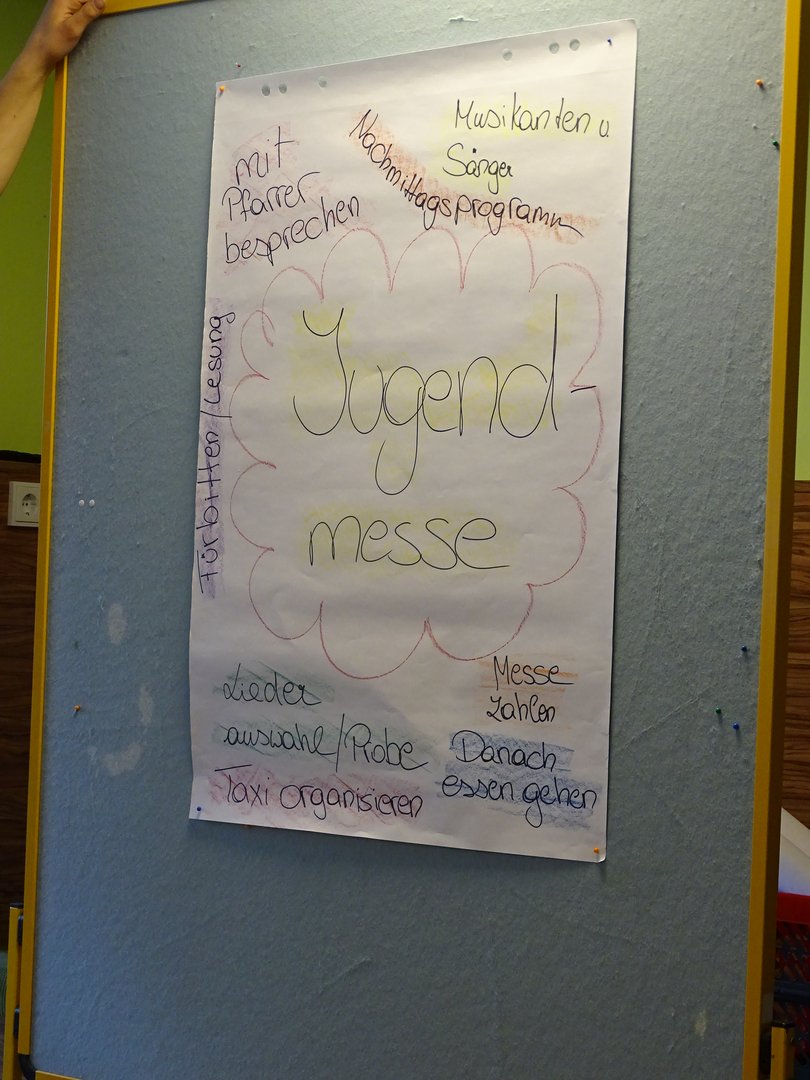 mit
Pfarrer
besprechen
Nachmittagsprogramm
Musikanten u.
Sänger
Fürbitten/Lesung
Jugend-
messe
Lieder
auswahl/Probe
Taxi organisieren
Messe
zahlen
Danach
essen gehen